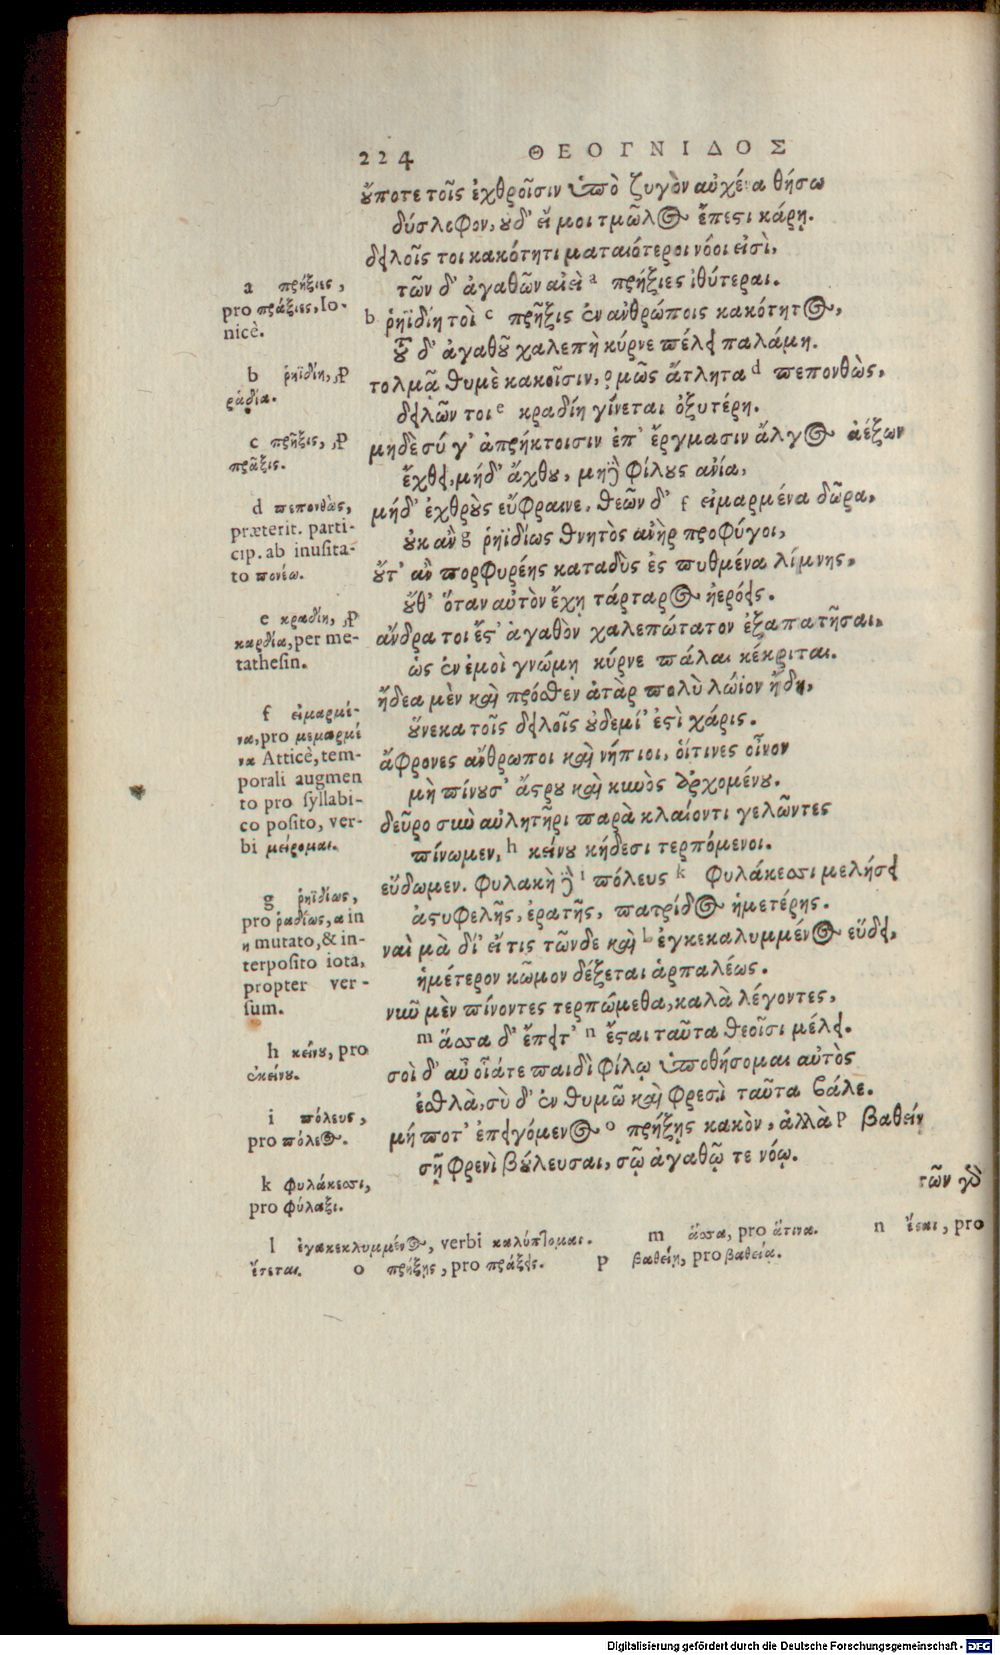 224 ΘΕΟΓΝΙΔΟΣ
οὔποτε τοῖς ἐχθροῖσιν ὑπὸ ζυγὸν αὐχένα θήσω
δύσλοφον, οὐδ' εἴ μοι τμῶλος ἔπεστι κάρῃ.
δειλοῖς τοι κακότητι ματαιότεροι νόοι εἰσὶ,
τῶν δ' ἀγαθῶν αἰεὶ a πρήξιες ἰθύτεραι.
b ῥηϊδίη τοὶ c πρῆξις ἐν ἀνθρώποις κακότητος,
τοῦ δ' ἀγαθοῦ χαλεπὴ κύρνε πέλει παλάμη.
τολμᾷ θυμὲ κακοῖσιν, ὁμῶς ἄτλητα d πεπονθὼς,
δειλῶν τοι e κραδίη γίνεται ὀξυτέρη.
μηδὲ σύ γ' ἀπρήκτοισιν ἐπ' ἔργμασιν ἄλγος ἀέξων
ἔχθει, μήδ' ἄχθου, μηδὲ φίλους ἀνία,
μήδ' ἐχθροὺς εὔφραινε. θεῶν δ' f εἱμαρμένα δῶρα,
οὐκ ἂν g ῥηϊδίως θνητὸς ἀνὴρ προφύγοι,
οὔτ' ἂν πορφυρέης καταδὺς ἐς πυθμένα λίμνης,
οὔθ' ὅταν αὐτὸν ἔχῃ τάρταρος ἠερόεις.
ἄνδρα τοι ἔστ' ἀγαθὸν χαλεπώτατον ἐξαπατῆσαι,
ὡς ἐν ἐμοὶ γνώμη κύρνε πάλαι κέκριται.
ᾔδεα μὲν καὶ πρόσθεν ἀτὰρ πολὺ λώϊον ἤδη,
οὕνεκα τοῖς δειλοῖς οὐδεμί' ἐστὶ χάρις.
ἄφρονες ἄνθρωποι καὶ νήπιοι, οἵτινες οἶνον
μὴ πίνουσ' ἄστρου καὶ κυνὸς ἀρχομένου.
δεῦρο σὺν αὐλητῆρι παρὰ κλαίοντι γελῶντες
πίνωμεν, h κείνου κήδεσι τερπόμενοι.
εὕδωμεν. φυλακὴ δὲ i πόλευς k φυλάκεσσι μελήσει
ἀστυφελῆς, ἐρατῆς, πατρίδος ἡμετέρης.
ναὶ μὰ δί' εἴ τις τῶνδε καὶ l ἐγκεκαλυμμένος εὕδει,
ἡμέτερον κῶμον δέξεται ἁρπαλέως.
νῦν μὲν πίνοντες τερπώμεθα, καλὰ λέγοντες,
m ἅσσα δ' ἔπειτ' n ἔσται ταῦτα θεοῖσι μέλει.
σοὶ δ' αὖ οἷάτε παιδὶ φίλῳ ὑποθήσομαι αὐτὸς
ἐσθλὰ, σὺ δ' ἐν θυμῶ καὶ φρεσὶ ταῦτα βάλε.
μή ποτ' ἐπειγόμενος o πρήξῃς κακὸν, ἀλλὰ p βαθείῃ
σῇ φρενὶ βούλευσαι, σῷ ἀγαθῷ τε νόῳ.
τῶν γὸ
a πρήξιες,
pro πράξιες, Io-
nicè.
b ῥηϊδίη, ꝓ
ῥᾳδία.
c πρῆξις, ꝓ
πρᾶξις.
d πεπονθὼς,
præterit. parti-
cip. ab inusita-
to πονέω.
e κραδίη, ꝓ
καρδία, per me-
tathesin.
f εἱμαρμέ-
να, pro μεμαρμέ
να Atticè, tem-
porali augmen
to pro syllabi-
co posito, ver-
bi μείρομαι.
g ῥηϊδίως,
pro ῥαδίως, α in
η mutato, & in-
terposito iota,
propter ver-
sum.
h κείνου, pro
ἐκείνου.
i πόλευς,
pro πόλεος.
k φυλάκεσσι,
pro φύλαξι.
l ἐγακεκλυμμένος, verbi καλύπτομαι. m ἅσσα, pro ἅτινα. n ἔσαι, pro
ἔτεται. o πρήξῃς, pro πράξεις. p βαθείῃ, pro βαθείᾳ.
Digitalisierung gefördert durch die Deutsche Forschungsgemeinschaft - DFG